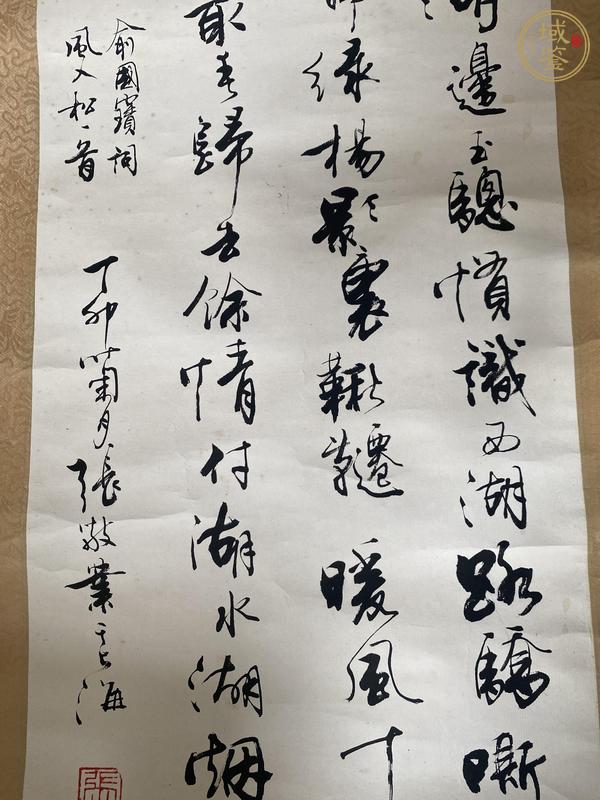 邊玉驄慣識西湖路驕嘶
綠楊影裏鞦韆暖風十
取春歸去餘情付湖水湖烟
俞國寶詞
風入松一首
丁卯菊月張敬業
張
域鉴